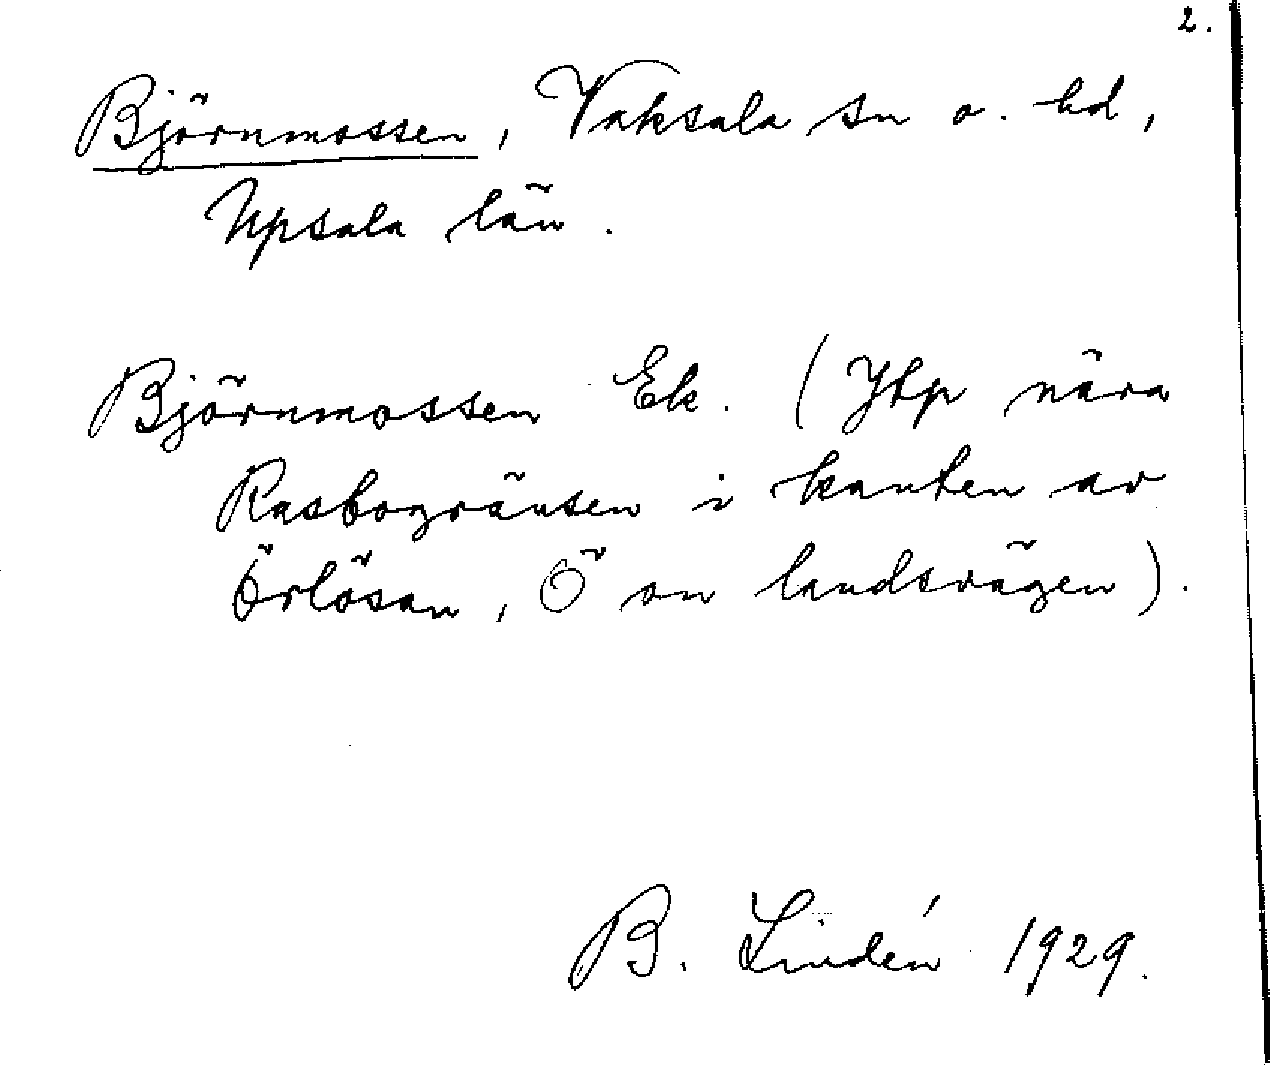 2.
Björnmossen, Vaksala sn o. hd,
Upsala län.
Björnmossen Ek. (Jtp nära
Rasbogränsen i kanten av
Örlösan, Ö on landsvägen).
B. Lindén 1929.